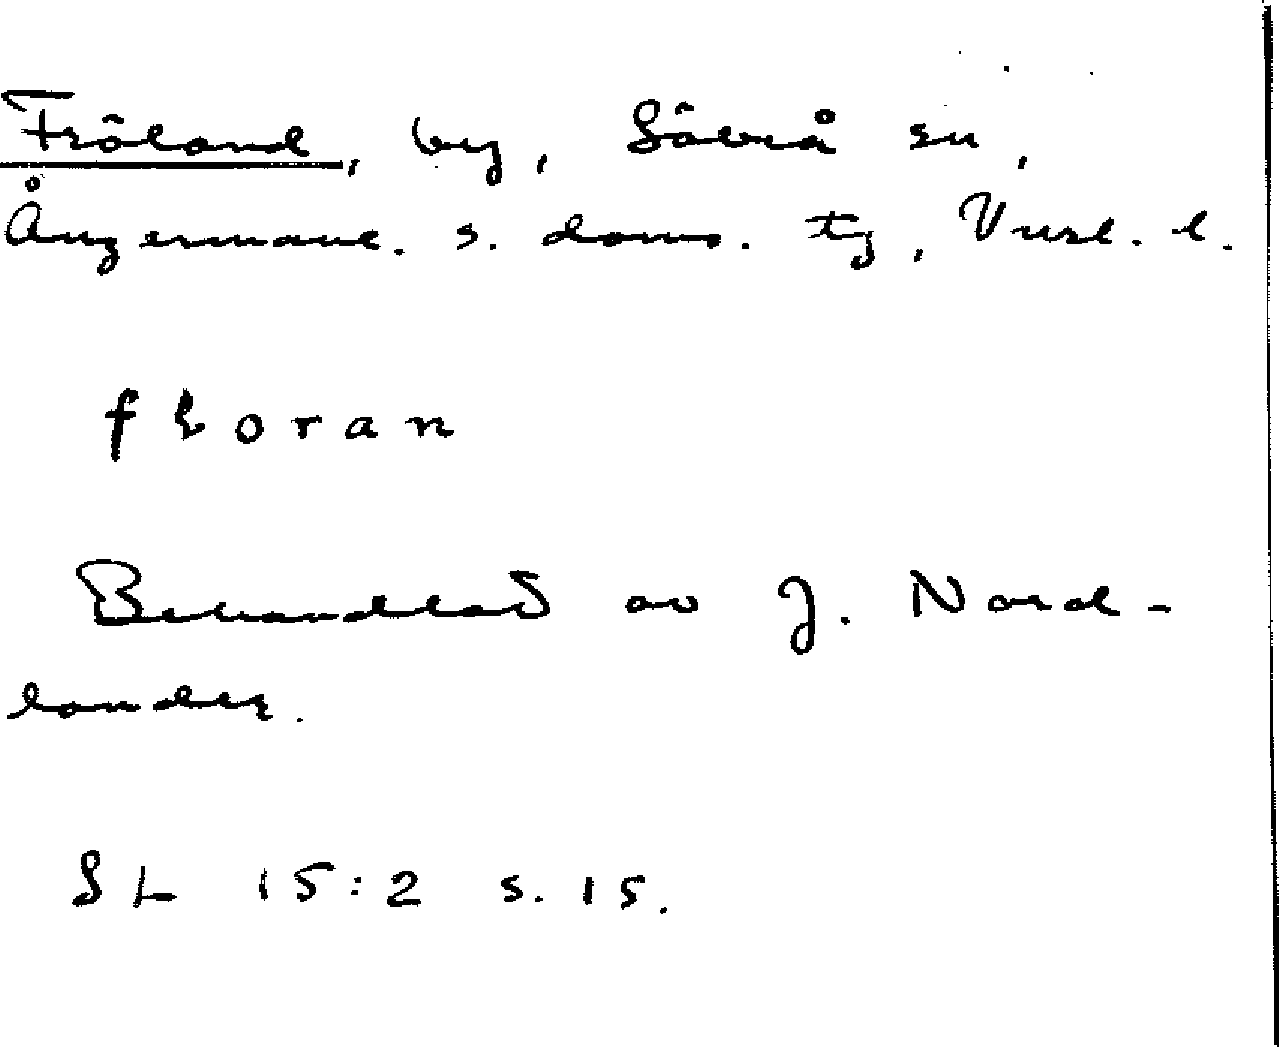 Fröland, by, Säbrå sn,
Ångermanl. s. doms. tg, Vnrl. l.
floran
Behandlad av J. Nord-
lander.
SL 15:2 s. 15.